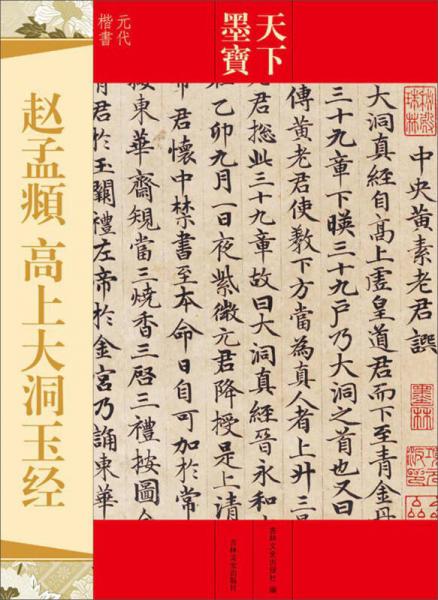 天下
墨寶
元代
楷書
赵孟頫 高上大洞玉经
中央黃素老君譔
大洞真經自高上虛皇道君而下至青金丹
三十九章下暎三十九户乃大洞之首也又曰
傳黃老君使教下方當為真人者上升三
君揔此三十九章故曰大洞真經晉永和
乙卯九月一日夜紫微元君降授是上清
帝君懷中禁書至本命日自可加於常
按東華齋規當三燒香三啓三禮按圖
君於玉闕禮左帝於金宮乃誦東華
墨林
吉林文史出版社 编
吉林文史出版社